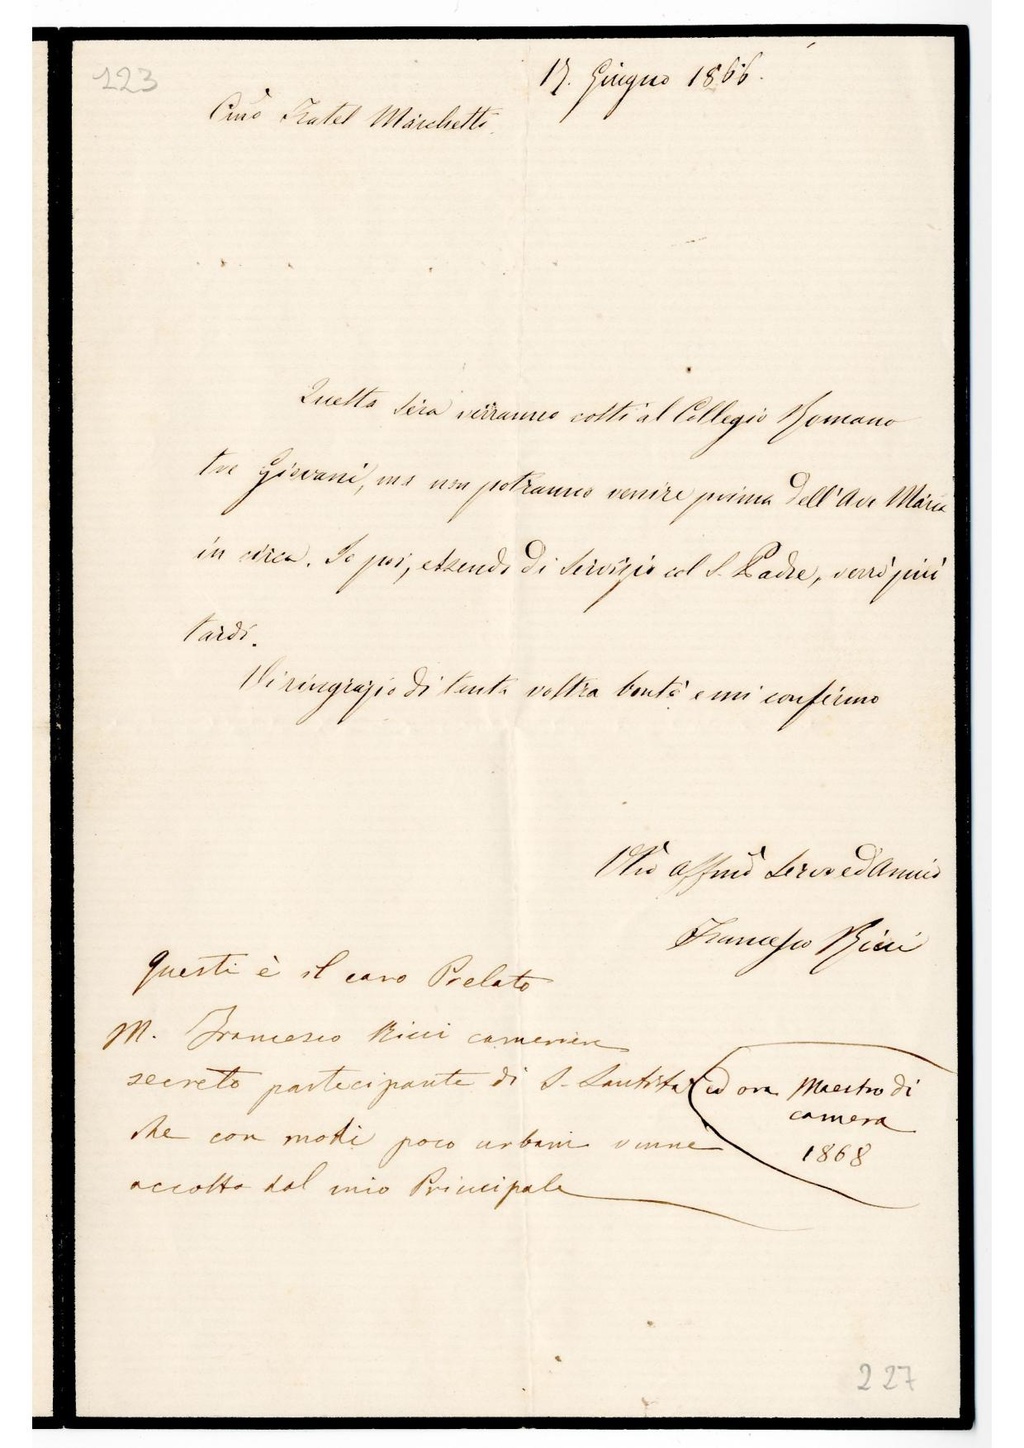 123
17. Giugno 1866.
Cmo Fratel Marchetti
Questa sera verranno costì al Collegio Romano
tre Giovani, ma non potranno venire prima dell'Ave Maria
in circa. Io poi, essendo di servizio col S. Padre, verrò più
tardi.
Vi ringrazio di tanta vostra bontà e mi confermo
Vtro affmo servo ed Amico
Francesco Ricci
Questi è il caro Prelato
M. Francesco Ricci camerier
secreto partecipante di S. Santità (ed ora Maestro di
camera
1868
che con modi poco urbani venne
accolto dal mio Principale
227